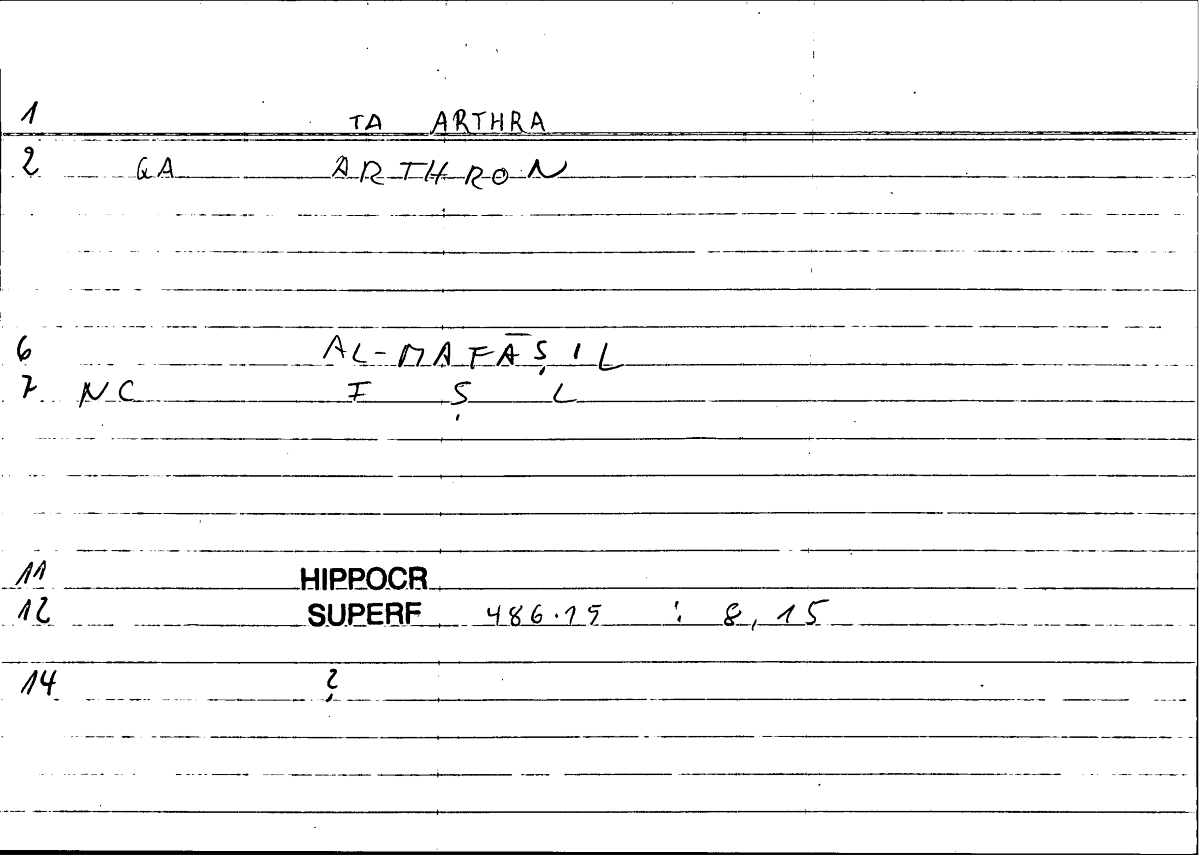 1 TA ARTHRA
2 GA ARTHRON
6 AL-MAFĀṢIL
7 NC F Ṣ L
11 HIPPOCR
12 SUPERF 486.19 : 8,15
14 ?